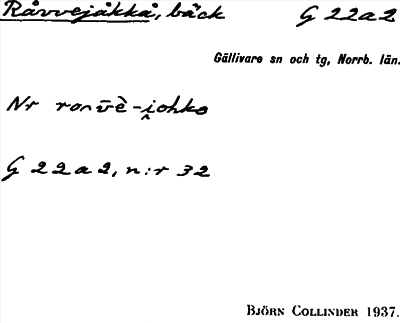 Råvvejåkkå, bäck G 22a2
Gällivare sn och tg, Norrb. län.
Nr
G 22a2, n:r 32
BJÖRN COLLINDER 1937.